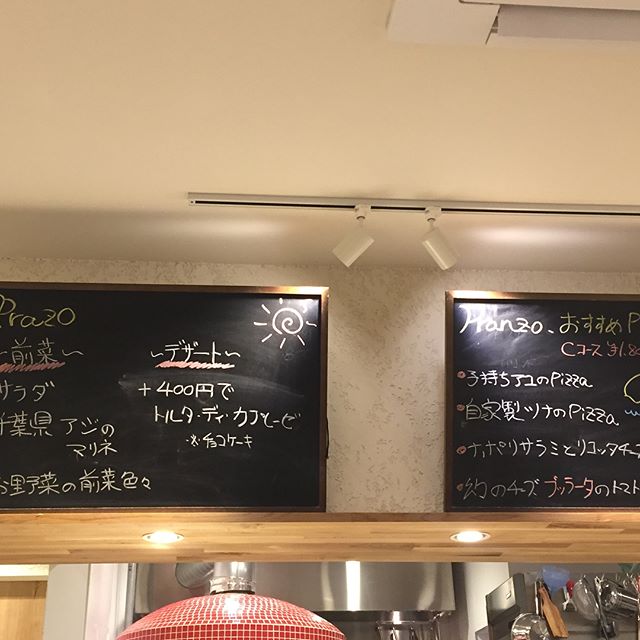 Prazo
前菜〜
〜デザート〜
サラダ
+400円で
千葉県 アジの
マリネ
トルタ・ディ・カプレーゼ
※チョコケーキ
お野菜の前菜色々
Pranzo、おすすめP
Cコース ¥1.80
・子持ちアユのPizza
・自家製ツナのPizza
・ナポリサラミとリコッタチー
・幻のチーズ ブッラータのトマト